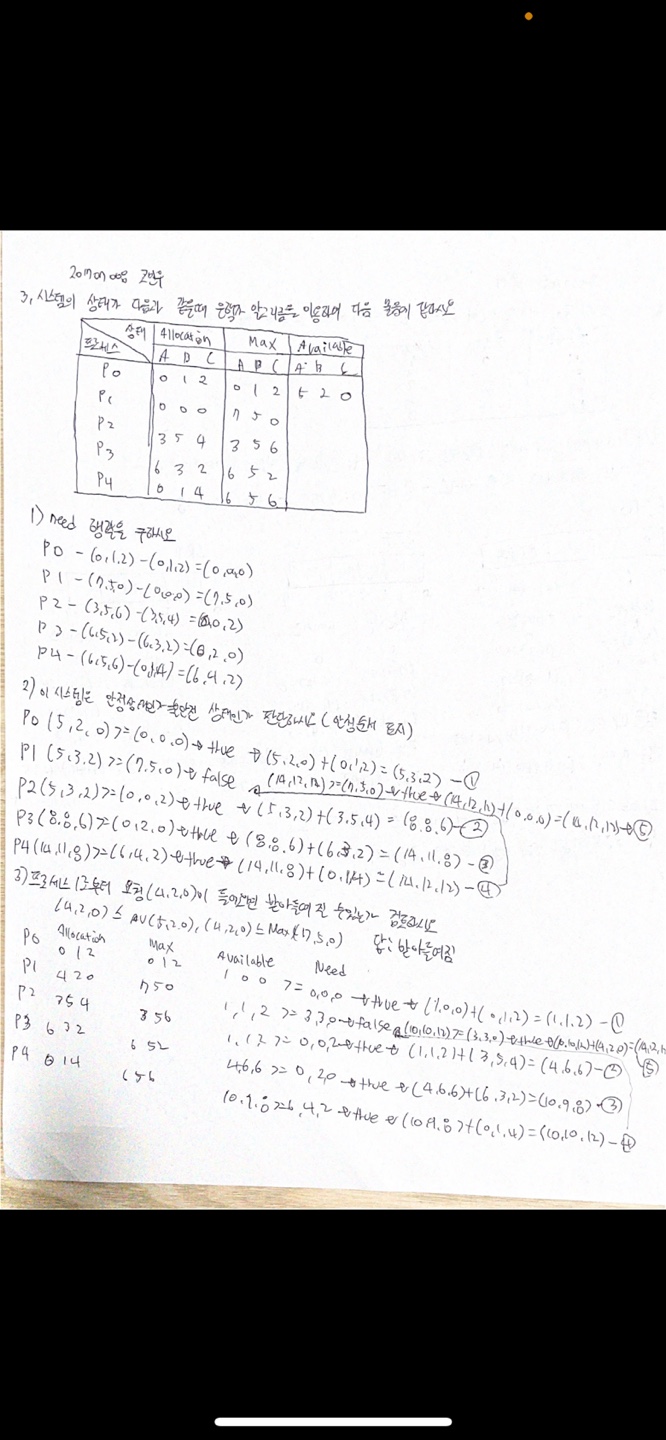 3. 시스템의 상태가 다음과 같을때 은행가 알고리즘을 이용하여 다음 물음에 답하시오
상태 Allocation Max Available
프로세스 A B C A B C A B C
P0 0 1 2 0 1 2 5 2 0
P1 0 0 0 7 5 0
P2 3 5 4 3 5 6
P3 6 3 2 6 5 2
P4 0 1 4 6 5 6
1) need 행렬을 구하시오
P0 - (0,1,2)-(0,1,2)=(0,0,0)
P1 - (7,5,0)-(0,0,0)=(7,5,0)
P2 - (3,5,6)-(3,5,4)=(0,0,2)
P3 - (6,5,2)-(6,3,2)=(0,2,0)
P4 - (6,5,6)-(0,1,4)=(6,4,2)
2) 이 시스템은 안정상태인가 불안전 상태인가 판단하시오 (안정순서 표시)
P0 (5,2,0)>=(0,0,0)→true→(5,2,0)+(0,1,2)=(5,3,2)-①
P1 (5,3,2)>=(7,5,0)→false (14,12,12)>=(7,5,0)→true→(14,12,12)+(0,0,0)=(14,12,12)→⑤
P2 (5,3,2)>=(0,0,2)→true→(5,3,2)+(3,5,4)=(8,8,6)-②
P3 (8,8,6)>=(0,2,0)→true→(8,8,6)+(6,3,2)=(14,11,8)-③
P4 (14,11,8)>=(6,4,2)→true→(14,11,8)+(0,1,4)=(14,12,12)-④
3) 프로세스 1로부터 요청(4,2,0)이 들어온다면 받아들여 질 수있는가 검토하시오
(4,2,0)≤AV(5,2,0), (4,2,0)≤Max(7,5,0) 답: 받아들여짐
Allocation Max Available Need
P0 0 1 2 0 1 2 1 0 0 >= 0,0,0→true→(1,0,0)+(0,1,2)=(1,1,2)-①
P1 4 2 0 7 5 0 1,1,2 >= 3,3,0→false (10,10,12)>=(3,3,0)→true→(10,10,12)+(4,2,0)=(14,12,12) ⑤
P2 3 5 4 3 5 6 1,1,2 >= 0,0,2→true→(1,1,2)+(3,5,4)=(4,6,6)-②
P3 6 3 2 6 5 2 4,6,6 >= 0,2,0→true→(4,6,6)+(6,3,2)=(10,9,8)-③
P4 0 1 4 6 5 6 10,9,8>=6,4,2→true→(10,9,8)+(0,1,4)=(10,10,12)-④